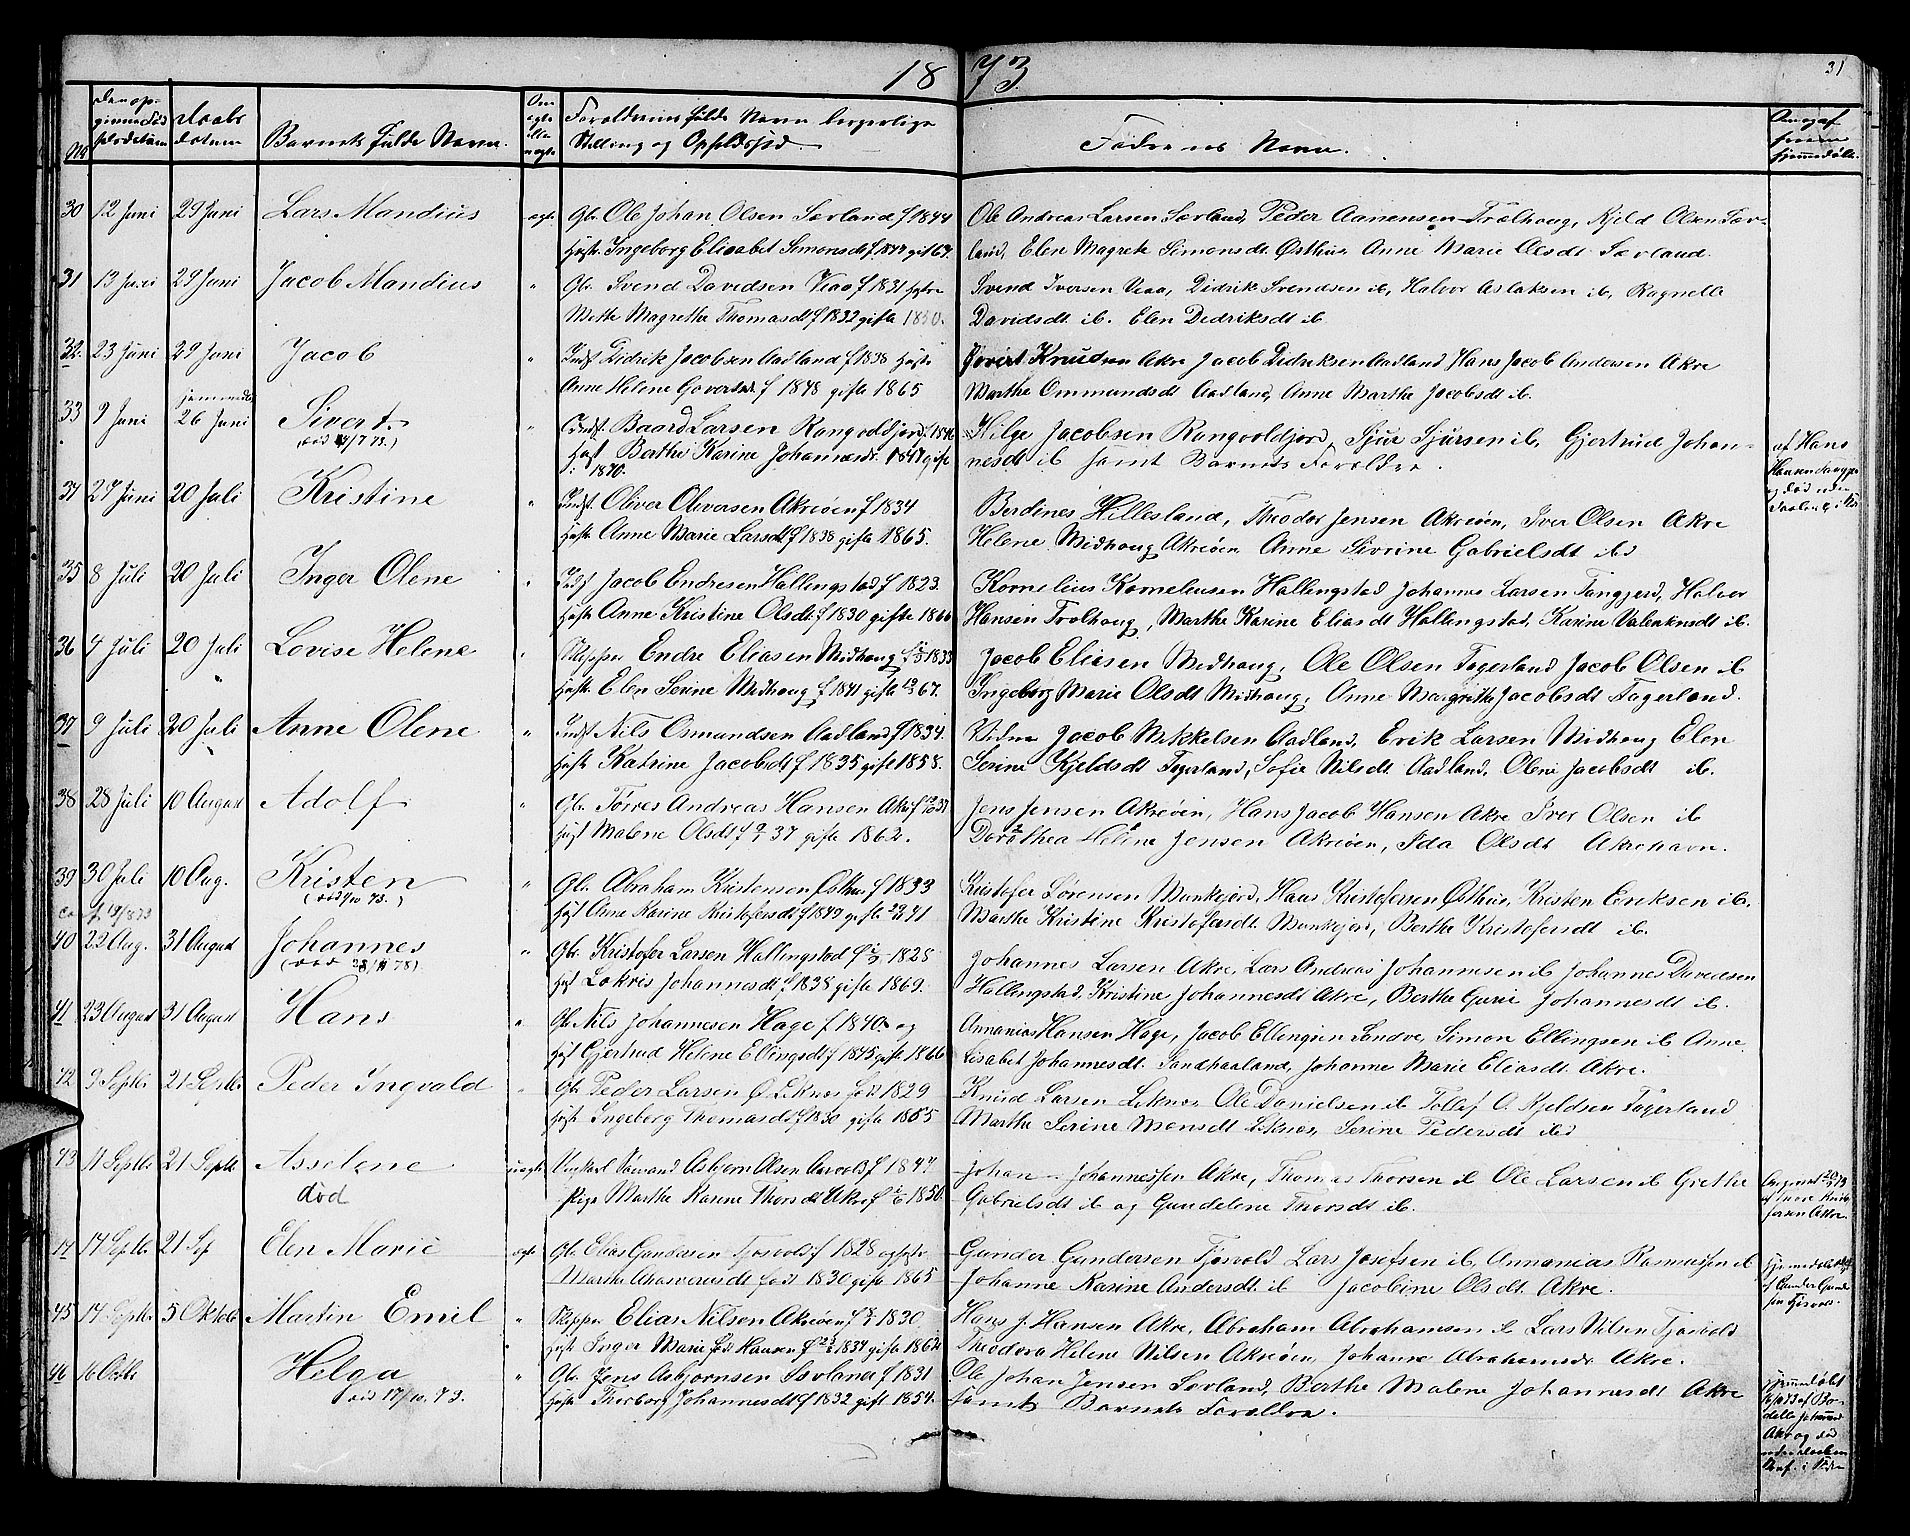 1873
31
Barnets fulde Navn.
Forældrenes fulde Navn borgerlige
Stilling og Opholdssted
Fadrenes Navn.
30 12 Juni 29 Juni Lars Mandius ægte Gb. Ole Johan Olsen Sævland f 1844
Hust. Ingeborg Elisabet Simonsdt f. 1844 gift 67.
Ole Andreas Larsen Sævland, Peder Aanensen Trælhoug, Kjeld Olsen Sæv-
land, Elen Magrete Simonsdt. Østhus Anne Marie Olsdt Sævland.
31 13 Juni 29 Juni Jacob Mandius " Gb. Svend Davidsen Veaa f 1831 Hustru
Mette Magrethe Thomasdt f 1832 gifte 1850.
Svend Iversen Veaa, Didrik Svendsen ib, Halvor Aslaksen ib, Ragnelle
Davidsdt. ib. Elen Dedriksdt ib
32. 23 Juni 29 Juni Jacob " Indst Didrik Jacobsen Aadland f 1838 Hustr
Anne Helene Govertsdt f 1848 gifte 1865
Govert Knudsen Akre Jacob Didriksen Aadland Hans Jacob Andersen Akre
Marthe Ommundsdt Aadland, Anne Marthe Jacobsdt ib.
33 9 Juni hjemmedøbt 26 Juni Sivert " Indst. Baard Larsen
(død 14/7 73.)
Hust Berthe Karine Johannesdt. 1847 gifte
1870.
Helge Jacobsen Sjur Sjursen ib, Gjertrud Johan-
nesdt ib samt Barnets Forældre.
af Hans
Hansen
og død uden
34 27 Juni 20 Juli Kristine " Indst. Oliver Oliversen Akreøen f 1834
Hust. Anne Marie Larsdt f 1838 gifte 1865.
Berdines Hillesland, Theodor Jensen Akreøen, Iver Olsen Akre
Helene Midhoug Akreøen Anne Sivrine Gabrielsdt ibd
35 8 Juli 20 Juli Inger Olene " Indst Jacob Endresen Hallingstad f 1823.
Hust. Anne Kristine Olsdt. f 1830 gifte 1866
Kornelius Korneliusen Hallingstad Johannes Larsen Halvor
Hansen Trolhoug, Marthe Karine Eliasdt Hallingstad, Karine Valentinsdt ib.
36 4 Juli 20 Juli Lovise Helene " Skipper Endre Eliasen Midhoug 1833
Hust. Elen Serine Midhoug f 1841 gifte 67.
Jacob Eliasen Midhoug, Ole Olsen Fagerland Jacob Olsen ib
Ingeborg Marie Olsdt Midhoug, Anne Margrethe Jacobsdt Fagerland.
37 9 Juli 20 Juli Anne Olene " Indst Nils Osmundsen Aadland f 1834.
Hust Katrine Jacobsdt f 1835 gift 1858.
Jacob Mikkelsen Aadland, Erik Larsen Midhoug Elen
Serine Kjeldsdt Fagerland, Sofie Nilsdt Aadland, Oline Jacobsdt ib.
38 28 Juli 10 August Adolf " Gb. Tørres Andreas Hansen Akre f 37
Hust Malene Olsdt f 37 gifte 1862.
Jens Jensen Akreøen, Hans Jacob Hansen Akre Iver Olsen ib
Dorothea Helene Jensen Akreøen, Ida Olsdt Akrehavn.
39 30 Juli 10 Aug. Kristen " Gb. Abraham Kristensen Østhus f 1833
Hust Anne Karine Kristofersdt f 1849 gifte 71
Kristofer Sørensen Munkejord, Hans Kristofersen Østhus, Kristen Eriksen ib.
Marthe Kristine Kristofersdt. Munkejord, Berthe Kristofersdt ib.
40 22 Aug. 31 August Johannes " Gb. Kristofer Larsen Hallingstad f 1828
Hust Lokris Johannesdt f 1838 gifte 1869.
Johannes Larsen Akre, Lars Andreas Johannesen ib Johannes Davidsen
Hallingstad, Kristine Johannesdt Akre, Berthe Gurie Johannesdt ib.
41 23 August 31 August Hans " Gb. Nils Johannesen Hage f 1840 og
Hust Gjertrud Helene Ellingsdt f 1845 gifte 1866
Annanias Hansen Hage, Jacob Ellingsen Sandve, Simon Ellingsen ib Anne
Lisabet Johannesdt. Sandhaaland, Johanne Marie Eliasdt Akre.
42 9 Septbr 21 Septbr Peder Ingvald " Gb. Peder Larsen Ø. Liknæs født 1829
Hust Ingeborg Thomasdt f 1830 gifte 1855
Knud Larsen Liknæs Ole Danielsen ib Tollef O. Kjeldsen Fagerland
Marthe Serine Monsdt Liknæs, Serine Pedersdt ibd
43 11 Septbr 21 Septbr Asselene uægte Ungkarl Sømand Asbjørn Olsen f 1847
død
Pige Marthe Karine Thorsdt Akre f 1850.
Johan Johannessen Akre, Thomas Thorsen ib Ole Larsen ib Grethe
Gabrielsdt ib og Gundelene Thorsdt ib.
44 14 Septbr. 21 Sep Elen Marie ægte Gb. Elias Gundersen Fjosvold f 1828 og Hustr
Marthe Ahasverusdt født 1830 gifte 1865
Gunder Gundersen Fjosvold Lars Josefsen ib. Annanias Rasmussen ib
Johanne Karine Andersdt. ib Jacobine Olsdt Akre.
45 14 Septbr 5 Oktob Martin Emil " Skipper Elias Nilsen Akreøen f 1830
Hust. Inger Marie født Hansen f 1834 gifte 1862
Hans J. Hansen Akre, Abraham Abrahamsen ib Lars Nilsen Fjosvold
Theodora Helene Nilsen Akreøen Johanne Abrahamsdt Akre.
46 16 Octbr Helga " Gb. Jens Asbjørnsen Sævland f 1831
død 17/10. 73.
Hust. Thorborg Johannesdt f 1832 gift 1854.
Ole Johan Jensen Sævland, Berthe Malene Johannesdt Akre
samt Barnets Forældre.
hjemmedøbt
Akre og død